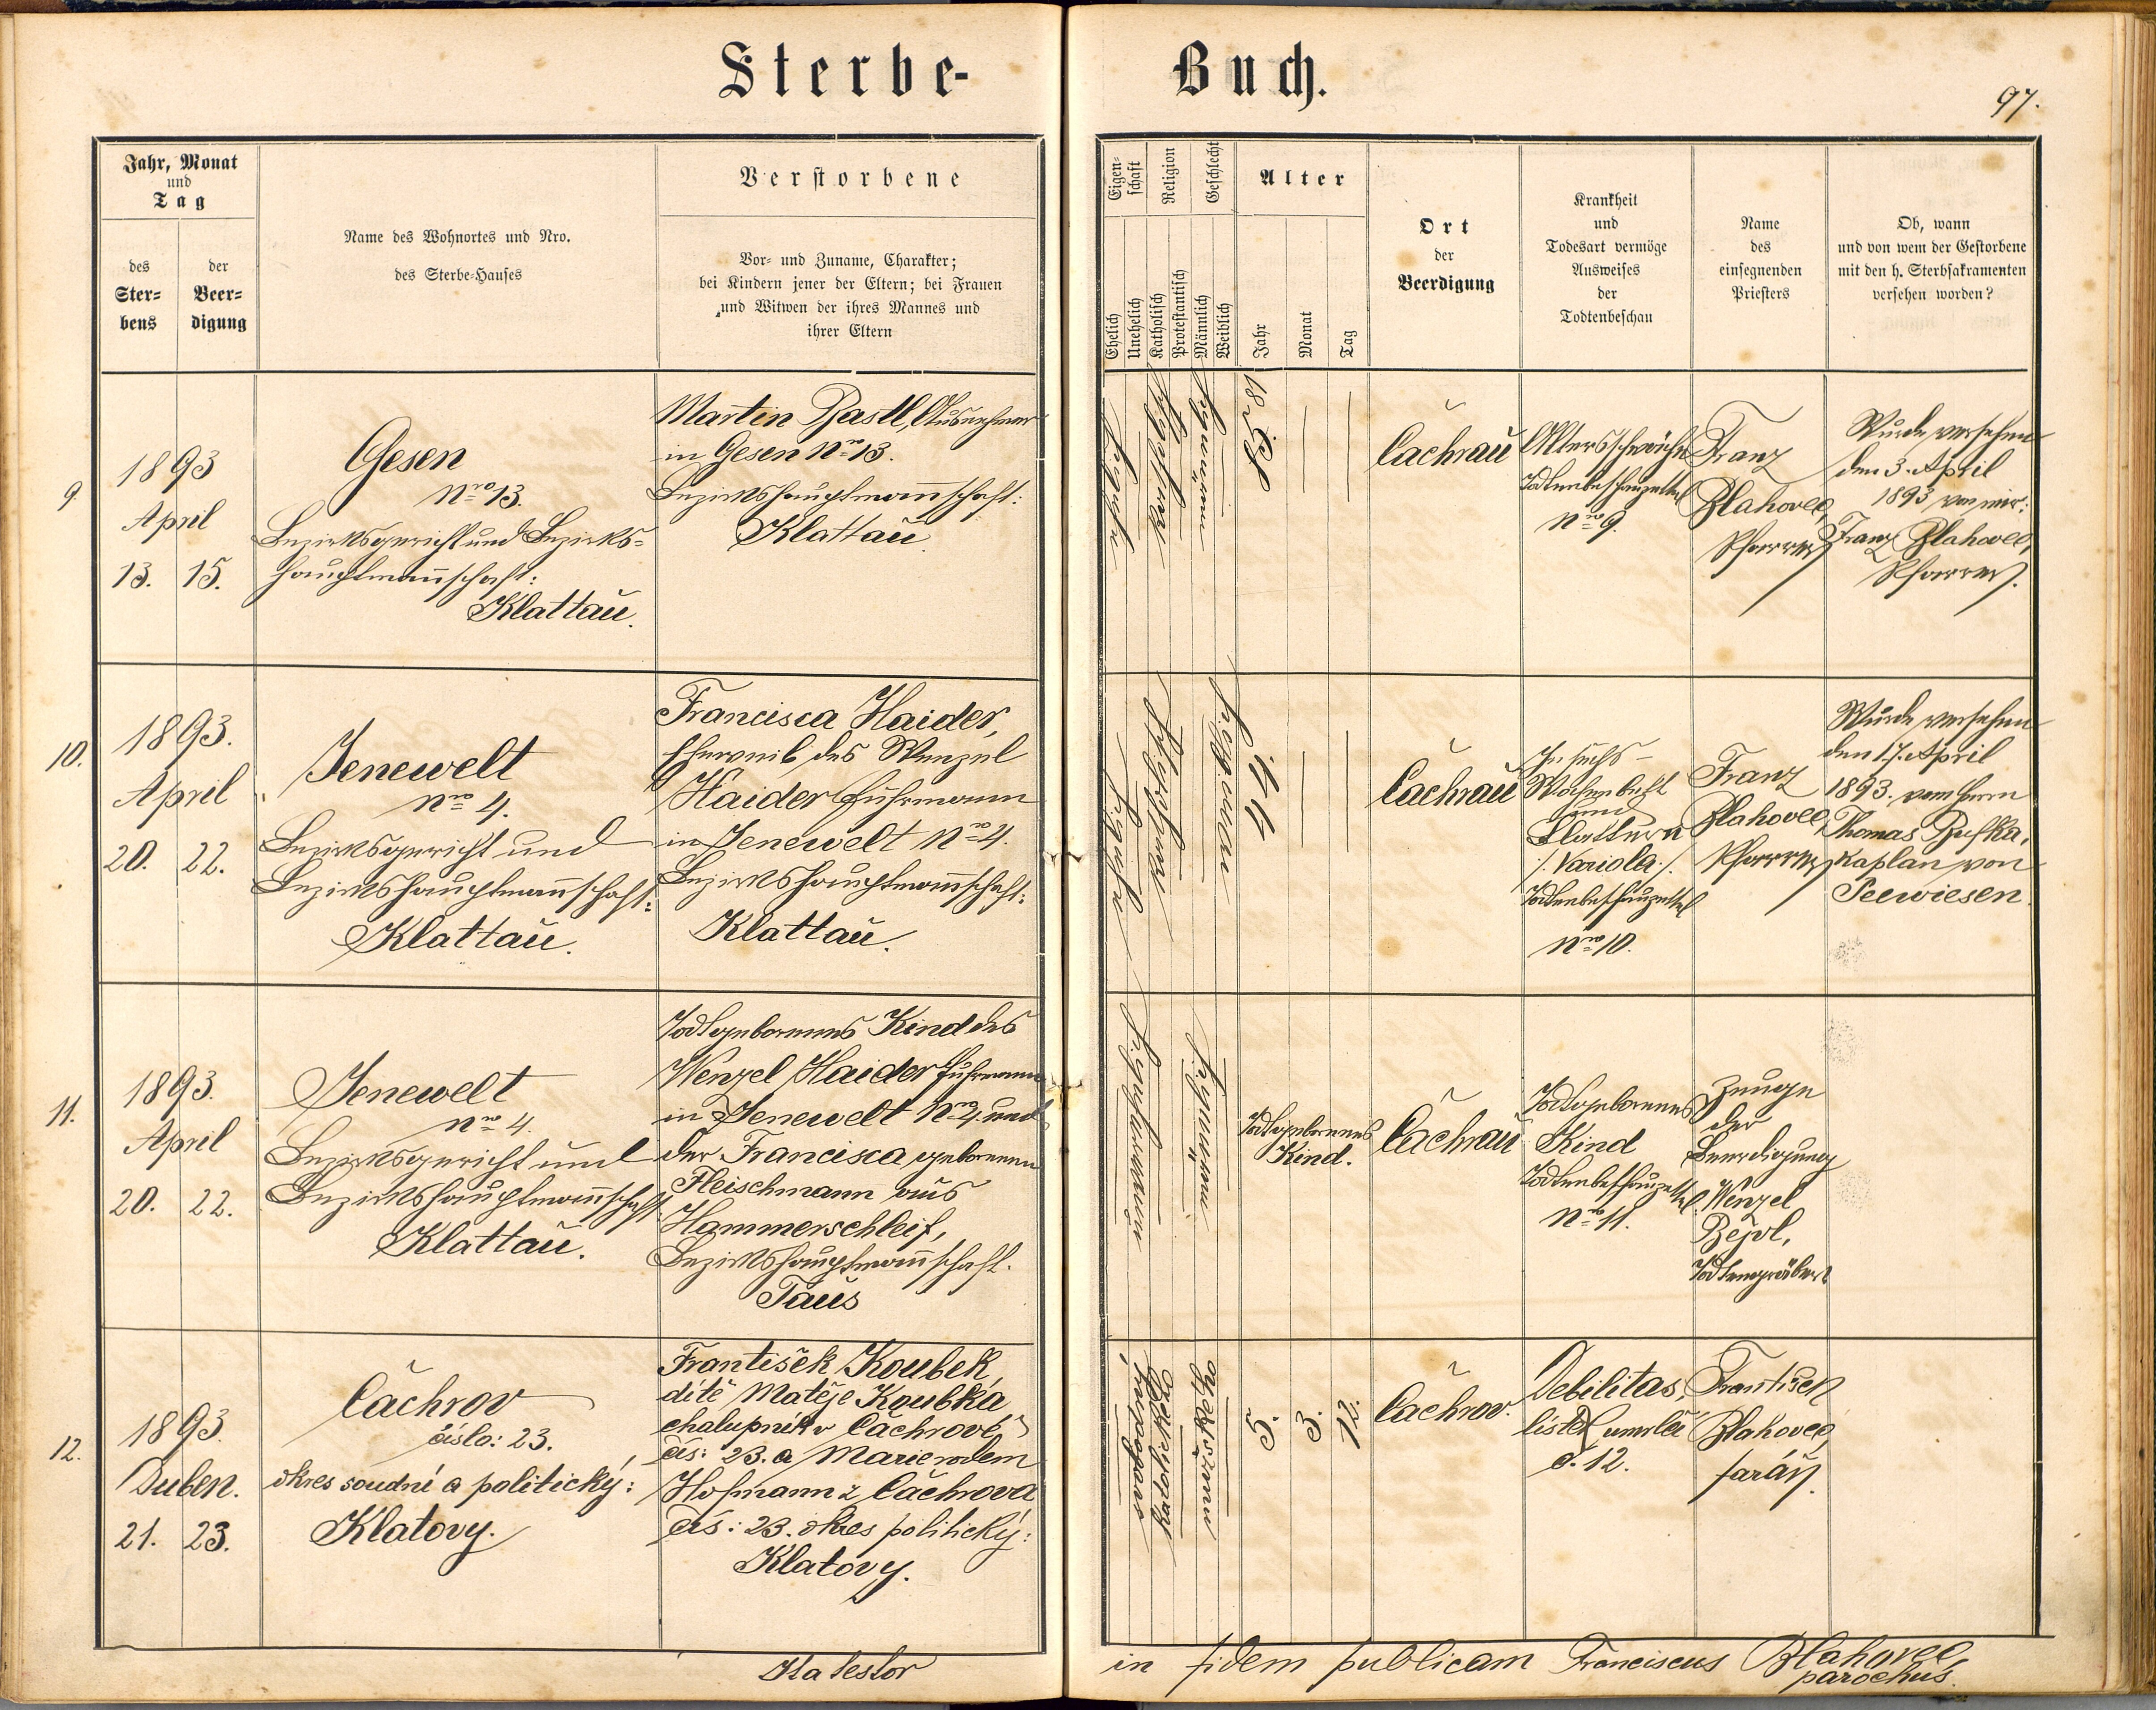 Sterbe-Buch.
97.
Jahr, Monat
und
Tag
des
Ster=
bens
der
Beer=
digung
Name des Wohnortes und Nro.
des Sterbe-Hauses
Verstorbene
Vor- und Zuname, Charakter;
bei Kindern jener der Eltern; bei Frauen
und Witwen der ihres Mannes und
ihrer Eltern
Eigen-
schaft
Ehelich
Unehelich
Religion
Katholisch
Protestantisch
Geschlecht
Männlich
Weiblich
Alter
Jahr
Monat
Tag
Ort
der
Beerdigung
Krankheit
und
Todesart vermöge
Ausweises
der
Todtenbeschau
Name
des
einsegnenden
Priesters
Ob, wann
und von wem der Gestorbene
mit den h. Sterbsakramenten
versehen worden?
9.
1893
April
13. 15.
Gesen
Nro 13.
Bezirksgericht und Bezirks=
hauptmannschaft:
Klattau.
Martin Bastl, Ausnehmer
in Gesen Nro 13.
Bezirkshauptmannschaft:
Klattau.
Čachrau
Altersschwäche
Todtenbeschauzettel
Nro 9.
Franz
Blahovec,
Pfarrer
Wurde versehen
den 3. April
1893 von mir:
Franz Blahovec,
Pfarrer.
10.
1893.
April
20. 22.
Jenewelt
Nro 4.
Bezirksgericht und
Bezirkshauptmannschaft:
Klattau.
Francisca Haider,
Eheweib des Wenzel
Haider Fuhrmann
in Jenewelt Nro 4.
Bezirkshauptmannschaft:
Klattau.
44
Čachrau
Wochenbett
und
Blattern
/. Variola ./.
Todtenbeschauzettel
Nro 10.
Franz
Blahovec,
Pfarrer
Wurde versehen
den 17. April
1893. vom Herrn
Thomas
Kaplan von
Seewiesen.
11.
1893.
April
20. 22.
Jenewelt
Nro 4.
Bezirksgericht und
Bezirkshauptmannschaft
Klattau.
Todtgeborenes Kind des
Wenzel Haider Fuhrmann
in Jenewelt Nro 4. und
der Francisca geborenen
Fleischmann aus
Hammerschleif,
Bezirkshauptmannschaft.
Taus
Todtgeborenes
Kind.
Čachrau
Todtgeborenes
Kind
Todtenbeschauzettel
Nro 11.
Zeuge
der
Beerdigung
Wenzel
Bejvl,
Todtengräber
12.
1893.
Duben.
21. 23.
Čachrov
číslo: 23.
okres soudní a politický:
Klatovy.
František Koubek,
dítě Matěje Koubka
chalupník v Čachrově
čís: 23. a Marie rodem
Hofmann z Čachrova
čís: 23. okres politický:
Klatovy.
manželské
katolické
mužské
5. 3. 12.
Čachrov.
Debilitas,
lístek umrlčí
č. 12.
František
Blahovec,
farář.
in fidem publicam Franciscus Blahovec
parochus.